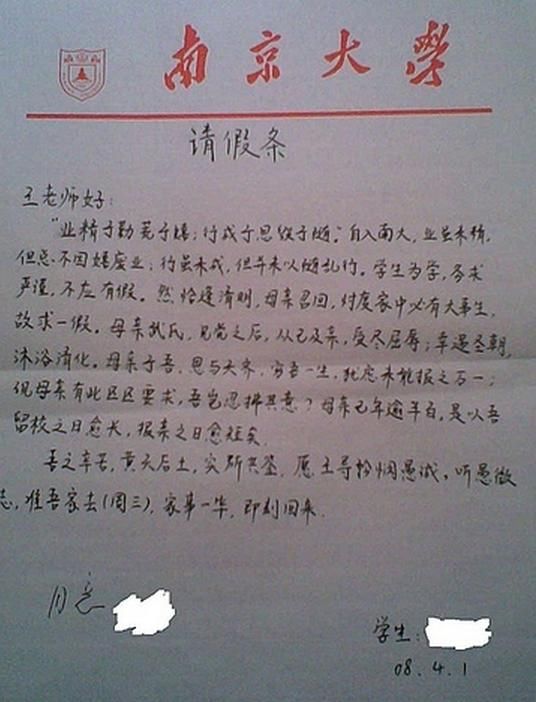 南京大學
请假条
王老师好:
“业精于勤荒于嬉;行成于思毁于随。”自入南大,业虽未精,
但总不因嬉废业;行虽未成,但并未以随乱行。学生为学,务求
严谨,不应有假。然恰逢清明,母亲召回,忖度家中必有大事生,
故求一假。母亲武氏,见党之后,从己及亲,受尽屈辱;幸遇圣朝,
沐浴清化。母亲于吾,恩与天齐,穷吾一生,犹恐未能报之万一;
况母亲有此区区要求,吾岂忍拂其意?母亲已年逾半百,是以吾
留校之日愈长,报亲之日愈短矣.
吾之辛苦,黄天后土,实所共鉴.愿王导怜悯愚诚,听愚微
志,准吾家去(周三),家事一毕,即刻回来.
同意
学生:
08.4.1